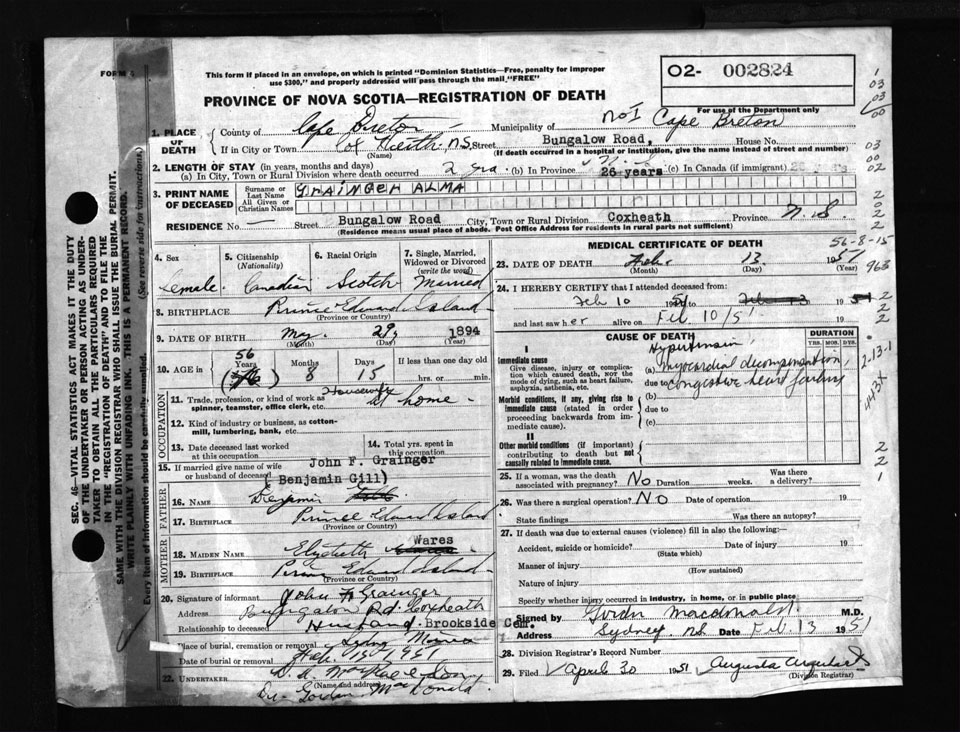 FORM
This form if placed in an envelope, on which is printed "Dominion Statistics—Free, penalty for improper
use $300," and properly addressed will pass through the mail "FREE"
O2- 002824
PROVINCE OF NOVA SCOTIA—REGISTRATION OF DEATH
For use of the Department only
1. PLACE OF DEATH
County of Cape Breton Municipality of No 1 Cape Breton
If in City or Town Cox Heath, N.S. Street Bungalow Road, House No.
(Name) (If death occurred in a hospital or institution, give the name instead of street and number)
2. LENGTH OF STAY (in years, months and days)
(a) In City, Town or Rural Division where death occurred 2 yrs. (b) In Province 26 years (c) In Canada (if immigrant)
3. PRINT NAME OF DECEASED
Surname or Last Name GRAINGER ALMA
All Given or Christian Names
RESIDENCE No. Street Bungalow Road City, Town or Rural Division Coxheath Province N. S.
(Residence means usual place of abode. Post Office Address for residents in rural parts not sufficient)
4. Sex 5. Citizenship (Nationality) 6. Racial Origin 7. Single, Married, Widowed or Divorced (write the word)
Female. Canadian Scotch Married
8. BIRTHPLACE Prince Edward Island
(Province or Country)
9. DATE OF BIRTH May 29, 1894
(Month) (Day) (Year)
10. AGE in 56 Years Months 8 Days 15 If less than one day old hrs. or min.
OCCUPATION
11. Trade, profession, or kind of work as spinner, teamster, office clerk, etc. Housewife at home
12. Kind of industry or business, as cotton-mill, lumbering, bank, etc.
13. Date deceased last worked at this occupation
14. Total yrs. spent in this occupation
15. If married give name of wife or husband of deceased John F. Grainger
FATHER
(Benjamin Gill)
16. NAME Benjamin
17. BIRTHPLACE Prince Edward Island
(Province or Country)
MOTHER
18. MAIDEN NAME Elizabeth Wares
19. BIRTHPLACE Prince Edward Island
(Province or Country)
20. Signature of informant John F. Grainger
Address Bungalow Rd. Coxheath
Relationship to deceased Husband.
Place of burial, cremation or removal Brookside Cem. Sydney Mines
Date of burial or removal Feb. 15 1951
22. UNDERTAKER
(Name and address)
Dr. Gordon MacDonald
MEDICAL CERTIFICATE OF DEATH
56-8-15
23. DATE OF DEATH Feb. 13 1951
(Month) (Day) (Year)
963
24. I HEREBY CERTIFY that I attended deceased from:
Feb 10 1951 to Feb 13 1951
and last saw her alive on Feb. 10/51 19
CAUSE OF DEATH
DURATION
YRS. MOS. DYS.
I
Immediate cause
Give disease, injury or complication which caused death, not the mode of dying, such as heart failure, asphyxia, asthenia, etc.
Hypertension
(a) myocardial decompensation,
due to congestive heart failure
Morbid conditions, if any, giving rise to immediate cause (stated in order proceeding backwards from immediate cause).
(b)
due to
(c)
II
Other morbid conditions (if important) contributing to death but not causally related to immediate cause.
2-13-1
443X
25. If a woman, was the death associated with pregnancy? No Duration weeks. Was there a delivery?
26. Was there a surgical operation? No Date of operation 19
State findings Was there an autopsy?
27. If death was due to external causes (violence) fill in also the following:—
Accident, suicide or homicide? Date of injury 19
(State which)
Manner of injury
(How sustained)
Nature of injury
Specify whether injury occurred in industry, in home, or in public place
Signed by Gordon Macdonald M.D.
Address Sydney. NS Date Feb 13 1951
28. Division Registrar's Record Number
29. Filed April 30 1951 Augusta Urquhart
(Division Registrar)
SEC. 46—VITAL STATISTICS ACT MAKES IT THE DUTY
OF THE UNDERTAKER OR PERSON ACTING AS UNDER-
TAKER TO OBTAIN ALL THE PARTICULARS REQUIRED
IN THE "REGISTRATION OF DEATH" AND TO FILE THE
SAME WITH THE DIVISION REGISTRAR WHO SHALL ISSUE THE BURIAL PERMIT.
WRITE PLAINLY WITH UNFADING INK. THIS IS A PERMANENT RECORD.
Every item of information should be carefully supplied. (See reverse side for instructions.)